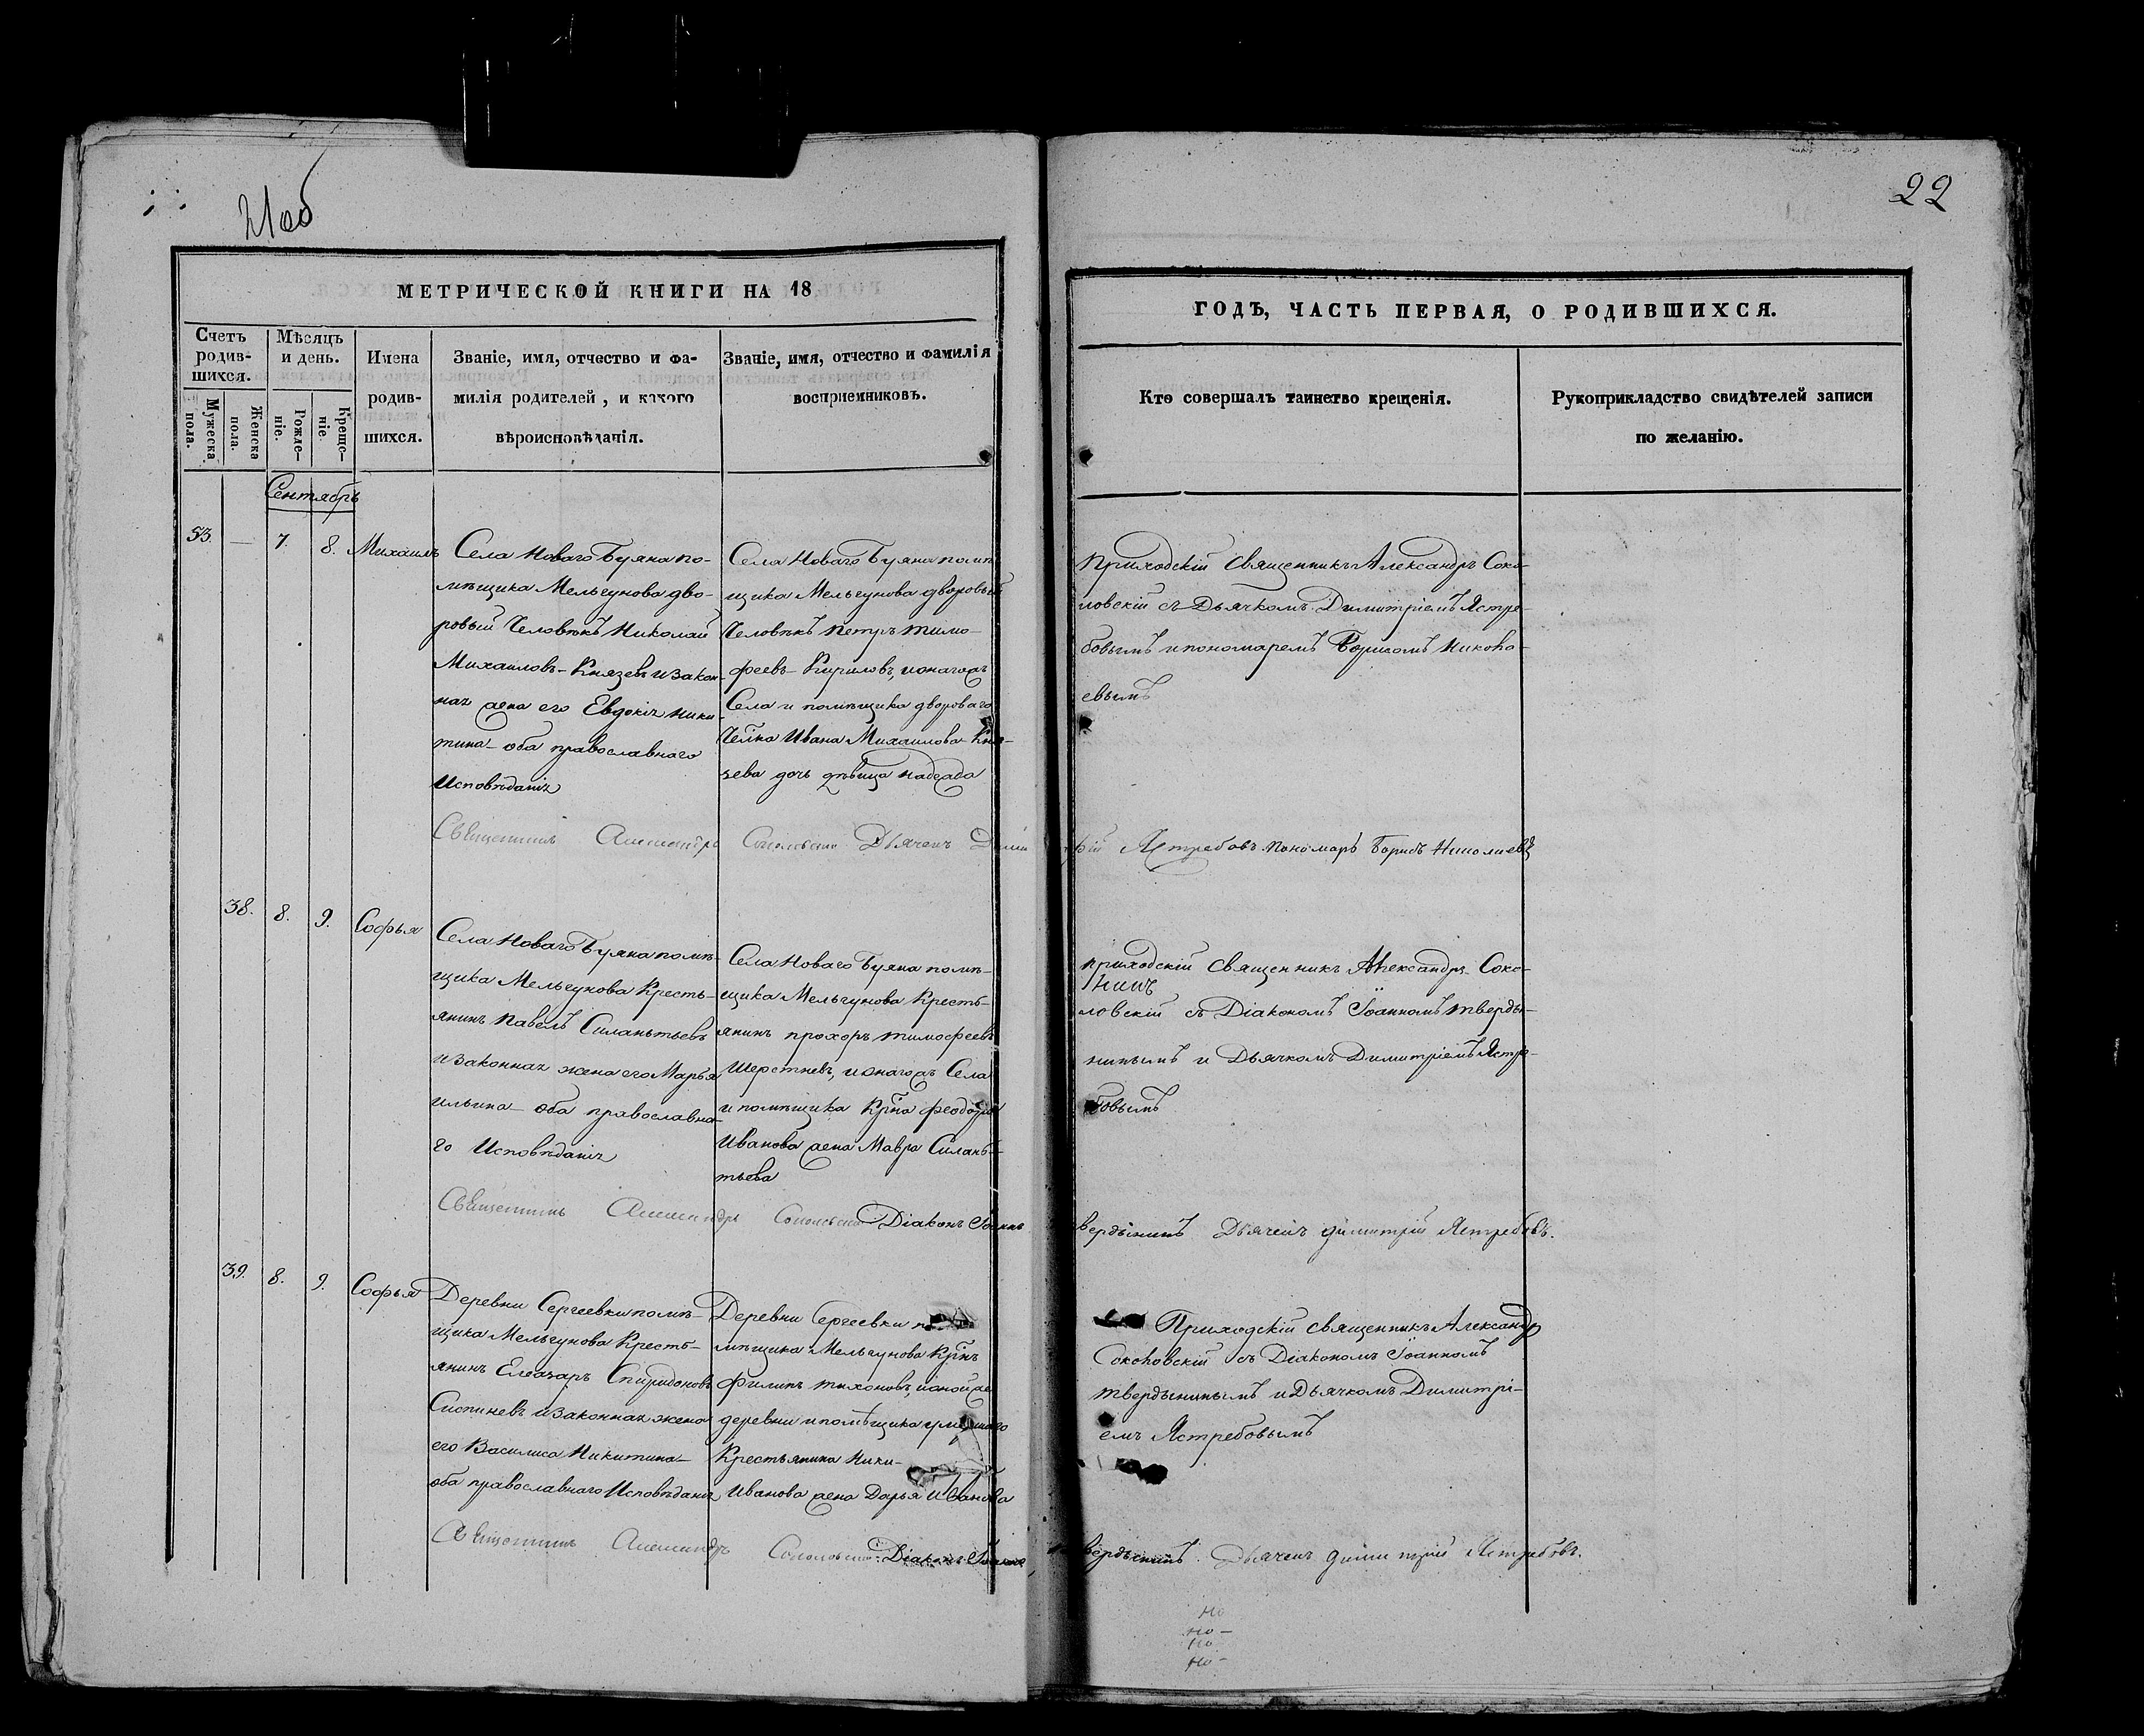 21об
22
МЕТРИЧЕСКОЙ КНИГИ НА 18
ГОДЪ, ЧАСТЬ ПЕРВАЯ, О РОДИВШИХСЯ.
Счетъ родив- шихся.
Мужеска пола.
Женска пола.
Мѣсяцъ и день.
Рожде- ніе.
Креще- ніе.
Имена родив- шихся.
Званіе, имя, отчество и фа-
милія родителей, и какого
вѣроисповѣданія.
Званіе, имя, отчество и фамилія
воспріемниковъ.
Кто совершалъ таинство крещенія.
Рукоприкладство свидѣтелей записи
по желанію.
Сентябрь
53. — 7. 8. Михаилъ
Села Новаго Буяна по-
мѣщика Мельгунова дво-
ровый Человѣкъ Николай
Михаиловъ-Князевъ и закон-
ная жена его Евдокія Ники-
тина- оба православнаго
Исповѣданія
Села Новаго Буяна помѣ
щика Мельгунова дворовый
Человѣкъ Петръ Тимо-
феевъ- Кириловъ, и онагожъ
Села и помѣщика двороваго
Чел҃ка Ивана Михаилова Кня-
зева дочь дѣвица Надежда
Приходскій Священникъ Александръ Соко-
ловскій съ Дьячкомъ Димитріемъ Ястре-
бовымъ и пономаремъ Борисомъ Никола-
евымъ
Священникъ Александръ Соколовскій Дьячекъ Димитрій Ястребовъ. Пономарь Борисъ Николаевъ
38. 8. 9. Софья
Села Новаго Буяна помѣ-
щика Мельгунова Кресть-
янинъ Павелъ Силантьевъ
и законная жена его Марья
Ильина- оба православна-
го Исповѣданія
Села Новаго Буяна помѣ-
щика Мельгунова Кресть-
янинъ Прохоръ Тимофеевъ
Шерстневъ, и онагожъ Села
и помѣщика Кр҃на Феодора
Иванова жена Мавра Силань-
тьева
Приходскій Священникъ Александръ Соко-
ловскій съ Діакономъ Іоанномъ Тверды-
нинымъ и Дьячкомъ Димитріемъ Ястре-
бовымъ
Священникъ Александръ Соколовскій Діаконъ Іоаннъ Твердынинъ Дьячекъ Димитрій Ястребовъ.
39. 8. 9. Софья
Деревни Сергеевки помѣ-
щика Мельгунова Кресть-
янинъ Елеазаръ Спиридоновъ
и законная жена
его Василиса Никитина-
оба православнаго Исповѣданія
Деревни Сергеевки
мѣщика Мельгунова Кр҃нъ
Филипъ Тихоновъ и оной же
деревни и помѣщика
Крестьянина Ники-
Иванова жена Дарья Иванова
Приходскій Священникъ Александръ
Соколовскій съ Діакономъ Іоанномъ
Твердынинымъ и Дьячкомъ Димитрі-
емъ Ястребовымъ
Священникъ Александръ Соколовскій. Діаконъ Іоаннъ Твердынинъ. Дьячекъ Димитрій Ястребовъ.
но
но -
но
но -